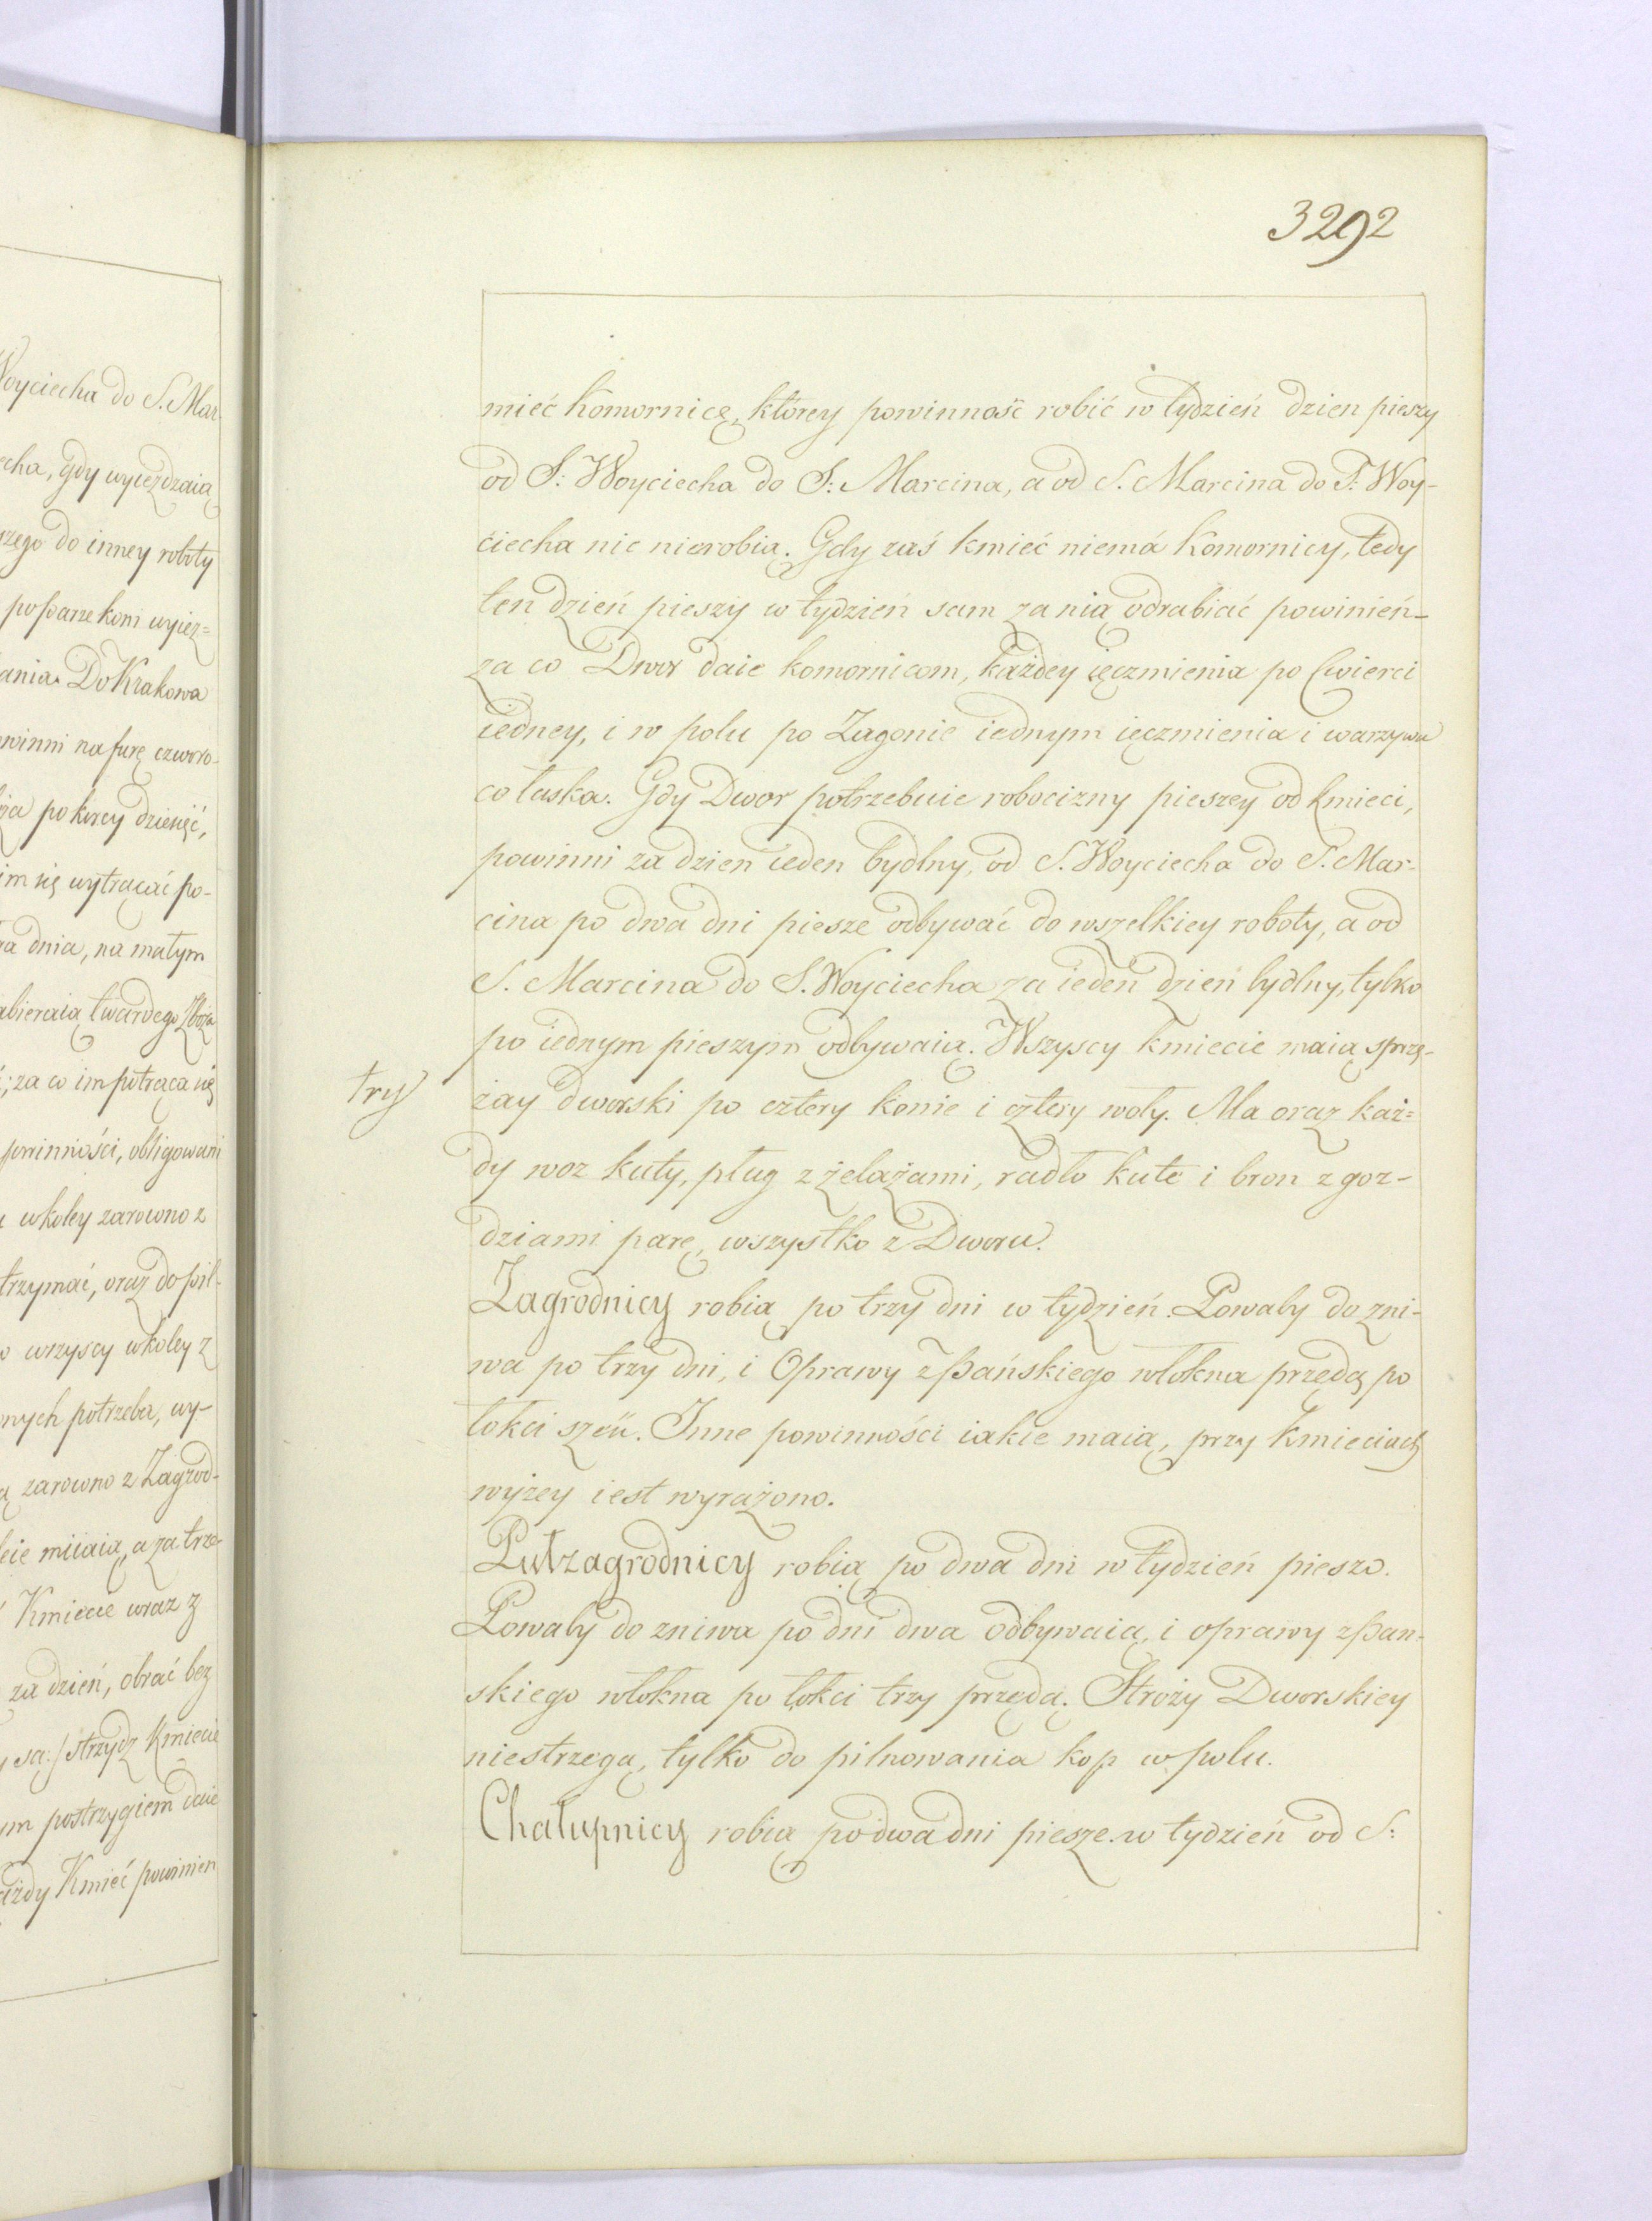 Woyciecha do S. Mar-
echa, gdy wyieżdzaią
szego do inney roboty
po parze koni wyież=
ania. Do Krakowa
winni na furę czworo-
po korcy dziesięć,
im się wytrącać po-
dnia, na małym
abieraią twardego zboża
; za co im potrąca się
powinności, obligowani
wkoley zarowno z
trzymać, oraz do pil-
wszyscy wkoley z
nych potrzeba, wy-
zarowno z Zagrod-
miiaią, a za trze-
Kmiecie wraz z
za dzień, obrać bez
są:/ strzydz Kmiecie
postrzygiem daie
ażdy Kmieć powinien
3292
mieć Komornicę, którey powinność robić w tydzień dzien pieszy
od S: Woyciecha do S: Marcina, a od S. Marcina do S. Woy-
ciecha nic nierobią. Gdy zaś kmieć niemá Komornicy, tedy
ten dzień pieszy w tydzień sam za nią odrabiać powinień-
za co Dwor daie komornicom, każdey ięczmienia po Cwierci
iedney, i w polu po Zagonie iednym ięczmienia i warzywa
co łaska. Gdy Dwor potrzebuie robocizny pieszey od kmieci,
powinni za dzien ieden bydlny, od S. Woyciecha do S. Mar-
cina po dwa dni piesze odbywać do wszelkiey roboty, a od
S. Marcina do S. Woyciecha za ieden dzień bydlny, tylko
po iednym pieszym odbywaią. Wszyscy kmiecie maią sprzę-
try
żay dworski po cztery konie i cztery woły. Ma oraz każ=
dy woz kuty, pług z żelażami, radło kute i bron z goz-
dziami parę, wszystko z Dworu.
Zagrodnicy robią po trzy dni w tydzień. Powaby do zni-
wa po trzy dni, i Oprawy z Pańskiego włokna przędą po
łokci sześć. Inne powinności iakie maią, przy Kmieciach
wyżey iest wyrażono.
Pułzagrodnicy robią po dwa dni w tydzień pieszo.
Powaby do zniwa po dni dwa odbywaią, i oprawy z Pan-
skiego włokna po łokci trzy przędą. Stroży Dworskiey
niestrzegą, tylko do pilnowania kop w polu.
Chałupnicy robią po dwa dni piesze w tydzień od S: